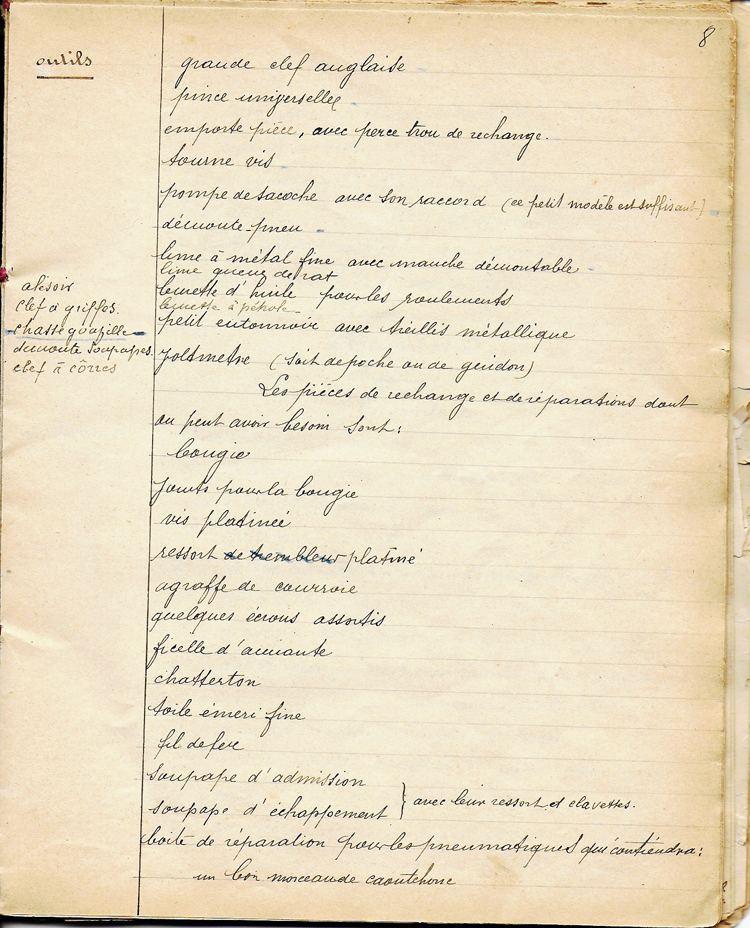 8
outils
grande clef anglaise
pince universelle
emporte pièce, avec perce trou de rechange.
tourne vis
pompe de sacoche avec son raccord (ce petit modèle est suffisant)
démonte-pneu
lime à métal fine avec manche démontable
lime queue de rat
burette d'huile pour les roulements
burette à pétrole
petit entonnoir avec treillis métallique
voltmètre (soit de poche ou de guidon)
alésoir
clef à griffes.
chasse goupille
démonte soupapes.
clef à
Les pièces de rechange et de réparations dont
on peut avoir besoin sont:
bougie
joints pour la bougie
vis platinée
ressort de trembleur platiné
agraffe de courroie
quelques écrous assortis
ficelle d'amiante
chatterton
toile émeri fine
fil de fer
soupape d'admission
soupape d'échappement } avec leur ressort et clavettes.
boite de réparation pour les pneumatiques qui contiendra:
un bon morceau de caoutchouc